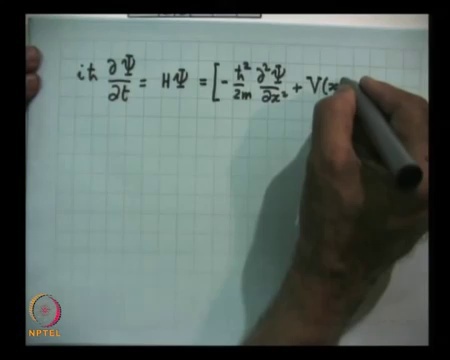 iħ ∂Ψ/∂t = HΨ = [ - ħ²/2m ∂²Ψ/∂x² + V(x
NPTEL